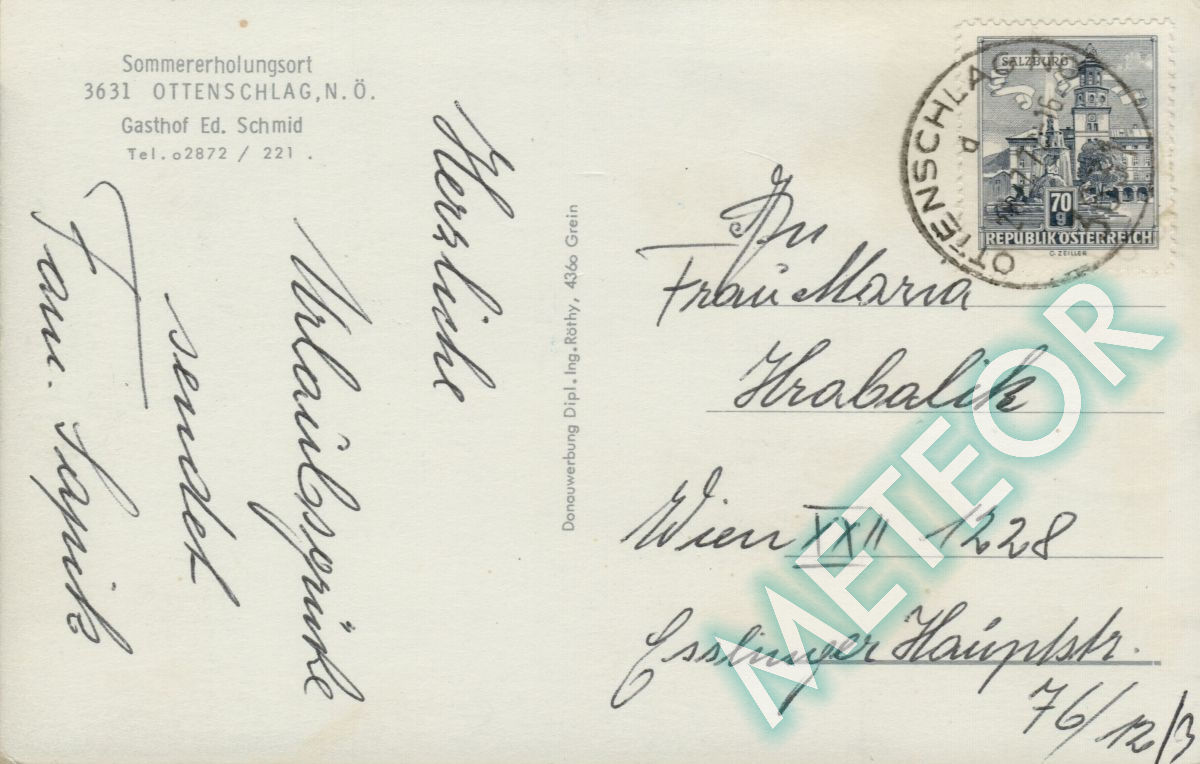 Sommererholungsort
3631 OTTENSCHLAG, N. Ö.
Gasthof Ed. Schmid
Tel. 02872 / 221 .
Herzliche
Urlaubsgrüße
sendet
Fam.
Donauwerbung Dipl. Ing. Röthy, 4360 Grein
SALZBURG
70
g
REPUBLIK ÖSTERREICH
O. ZEILLER
OTTENSCHLAG NÖ
d
An
Frau Maria
Hrabalik
Wien XXII 1228
Esslinger Hauptstr.
76/12/3
METEOR